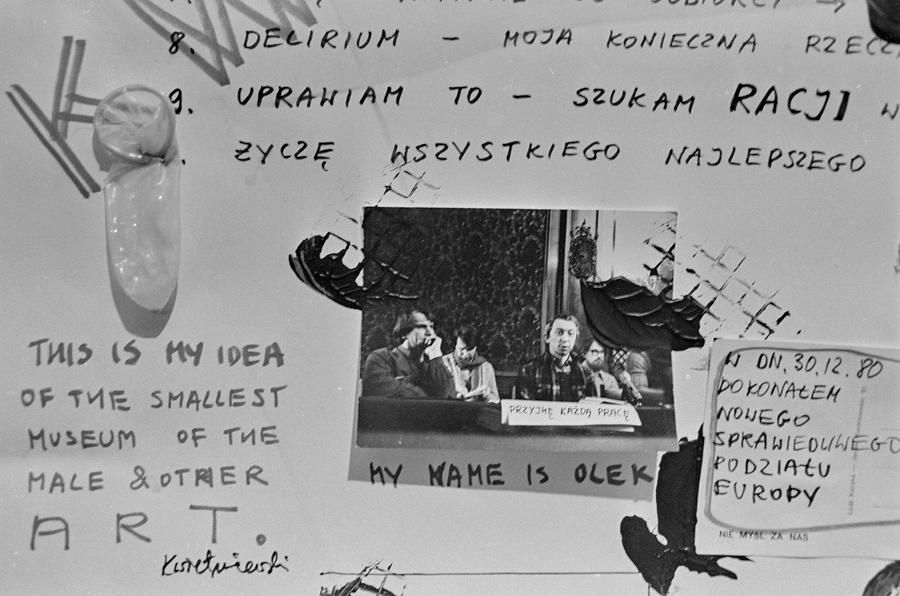 8. DELIRIUM - MOJA KONIECZNA
9. UPRAWIAM TO - SZUKAM RACJI W
ŻYCZĘ WSZYSTKIEGO NAJLEPSZEGO
THIS IS MY IDEA
OF THE SMALLEST
MUSEUM OF THE
MALE & OTHER
ART.
PRZYJMĘ KAŻDĄ PRACĘ
MY NAME IS OLEK
W DN. 30.12.80
DOKONAŁEM
NOWEGO
SPRAWIEDLIWEGO
PODZIAŁU
EUROPY
NIE MYŚL ZA NAS